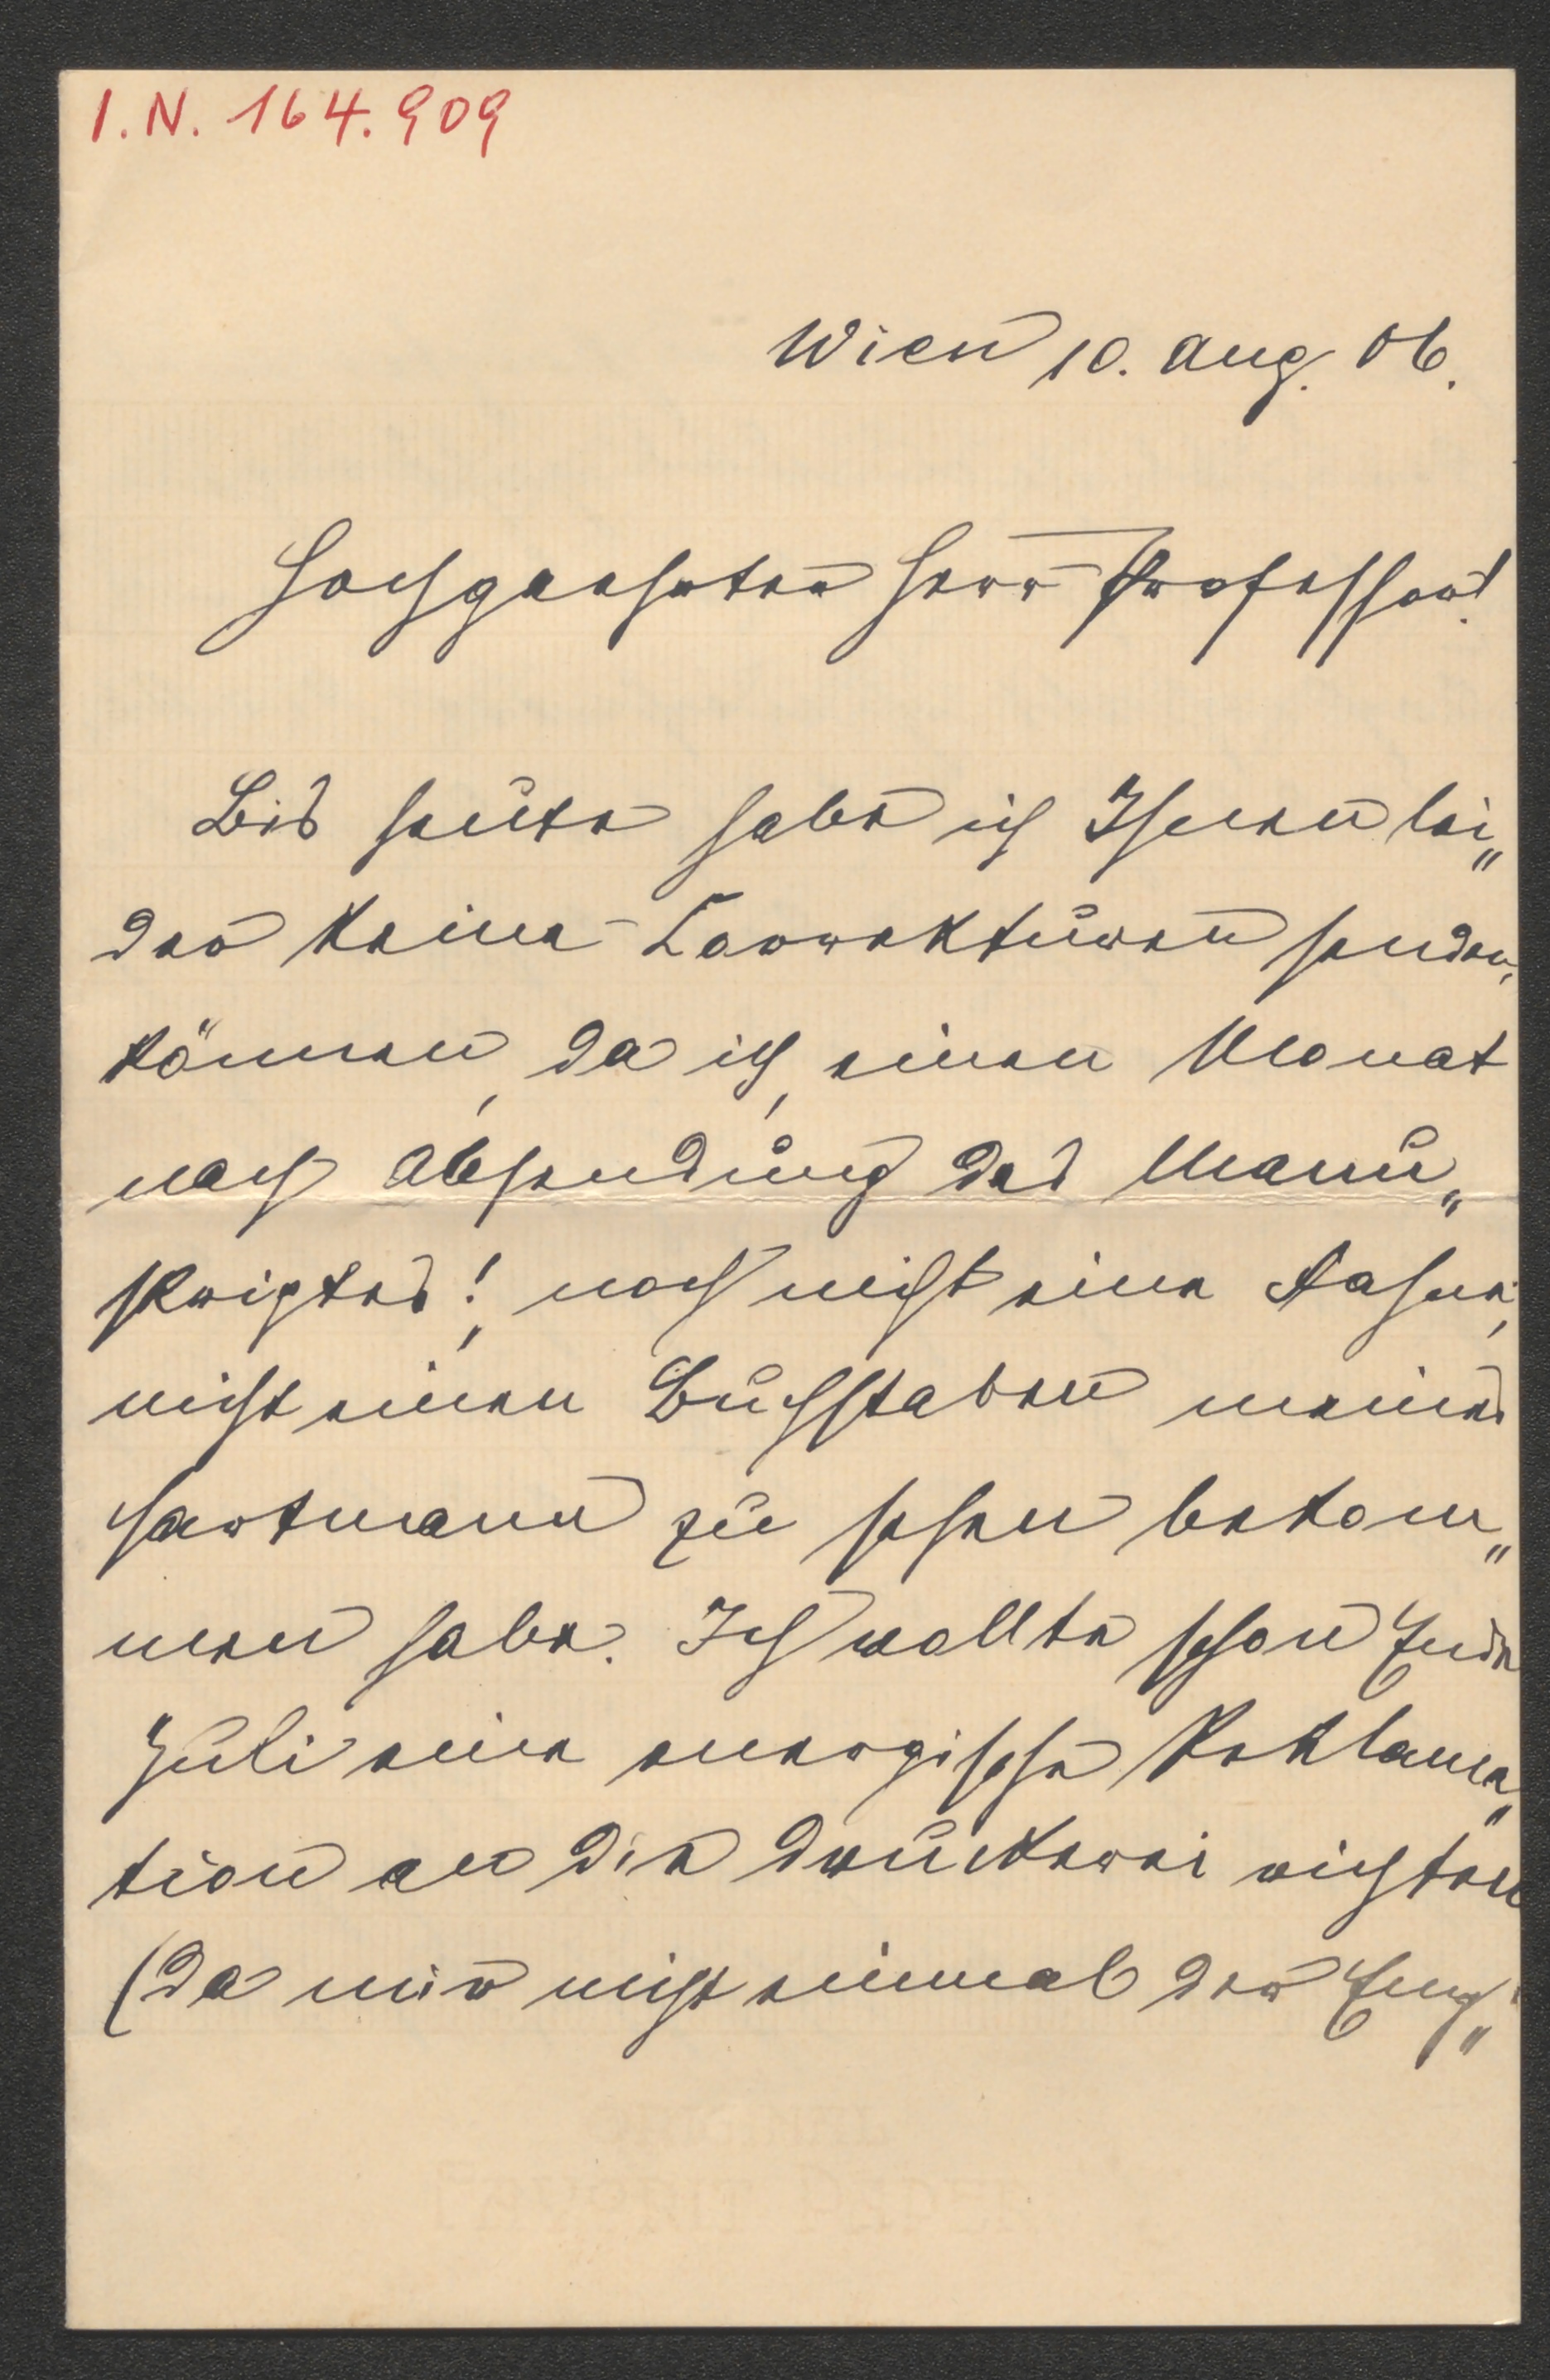 I.N. 164.909
Wien 10. Aug. 06.
Hochgeehrter Herr Professor!
Bis heute habe ich Ihnen lei„
der keine Correkturen senden
können, da ich, einen Monat
nach Absendung des Manu„
skriptes!, noch nicht eine Fahne,
nicht einen Buchstaben meines
Hartmann zu sehen bekom„
men habe. Ich wollte schon Ende
Juli eine energische Reklama„
tion an die Druckerei richten
(da mir nicht einmal der Emp„